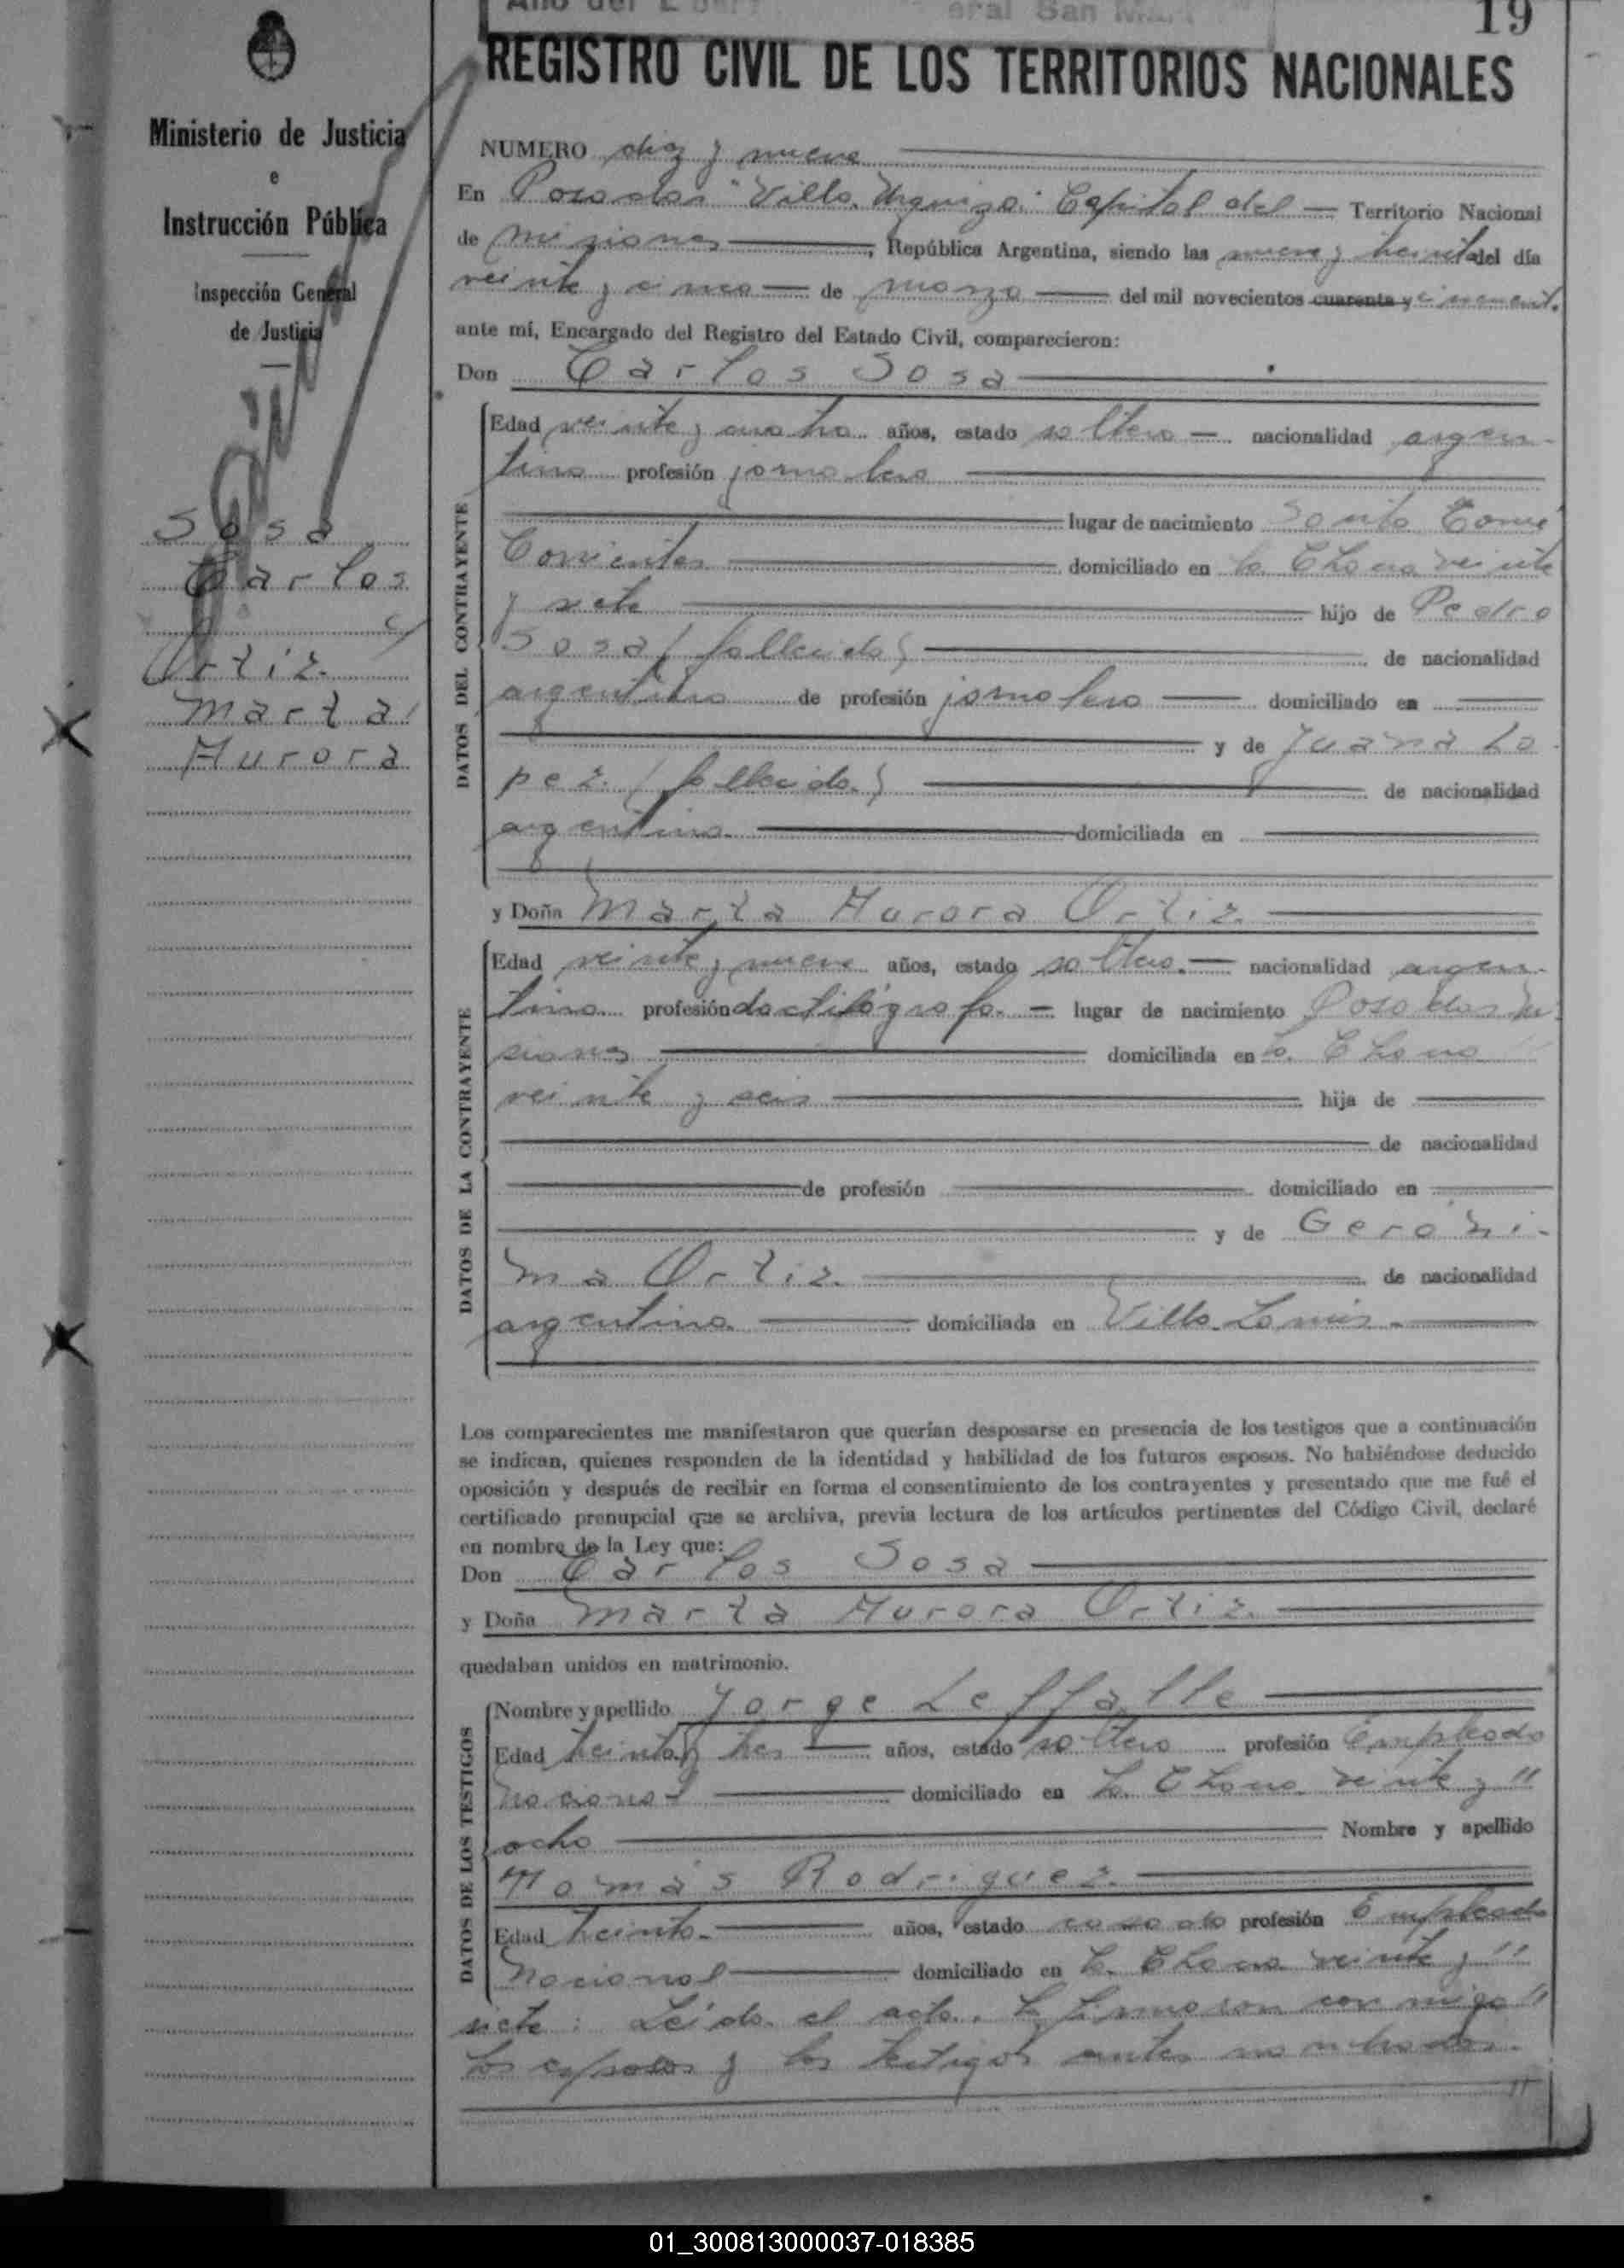 19
REGISTRO CIVIL DE LOS TERRITORIOS NACIONALES
Ministerio de Justicia
e
Instrucción Pública
Inspección General
de Justicia
Sosa
Carlos
y
Ortiz
Marta
Aurora
NUMERO diez y nueve
En Posadas "Villa Urquiza" Capital del Territorio Nacional
de Misiones, República Argentina, siendo las nueve y treinta del día
veinte y cinco de marzo del mil novecientos cuarenta y cincuenta.
ante mí, Encargado del Registro del Estado Civil, comparecieron:
Don Carlos Sosa
DATOS DEL CONTRAYENTE
Edad veinte y cuatro años, estado soltero nacionalidad argen-
tina profesión jornalero
lugar de nacimiento Santo Tomé
Corrientes domiciliado en la Chacra veinte
y siete hijo de Pedro
Sosa (fallecido) de nacionalidad
argentina de profesión jornalero domiciliado en
y de Juana Ló
pez (fallecida) de nacionalidad
argentina domiciliada en
y Doña Marta Aurora Ortiz
DATOS DE LA CONTRAYENTE
Edad veinte y nueve años, estado soltera nacionalidad argen-
tina profesión dactilógrafa lugar de nacimiento Posadas Mi
siones domiciliada en la Chacra
veinte y seis hija de
de nacionalidad
de profesión domiciliado en
y de Geróni-
ma Ortiz de nacionalidad
argentina domiciliada en Villa Lanús
Los comparecientes me manifestaron que querían desposarse en presencia de los testigos que a continuación
se indican, quienes responden de la identidad y habilidad de los futuros esposos. No habiéndose deducido
oposición y después de recibir en forma el consentimiento de los contrayentes y presentado que me fué el
certificado prenupcial que se archiva, previa lectura de los artículos pertinentes del Código Civil, declaré
en nombre de la Ley que:
Don Carlos Sosa
y Doña Marta Aurora Ortiz
quedaban unidos en matrimonio.
DATOS DE LOS TESTIGOS
Nombre y apellido Jorge Leffalle
Edad treinta y tres años, estado soltero profesión Empleado
Nacional domiciliado en la Chacra veinte y "
ocho Nombre y apellido
Tomás Rodriguez
Edad treinta años, estado casado profesión Empleado
Nacional domiciliado en la Chacra veinte y "
siete: Leída el acta, la firmaron conmigo "
los esposos y los testigos antes nombrados.
01_300813000037-018385